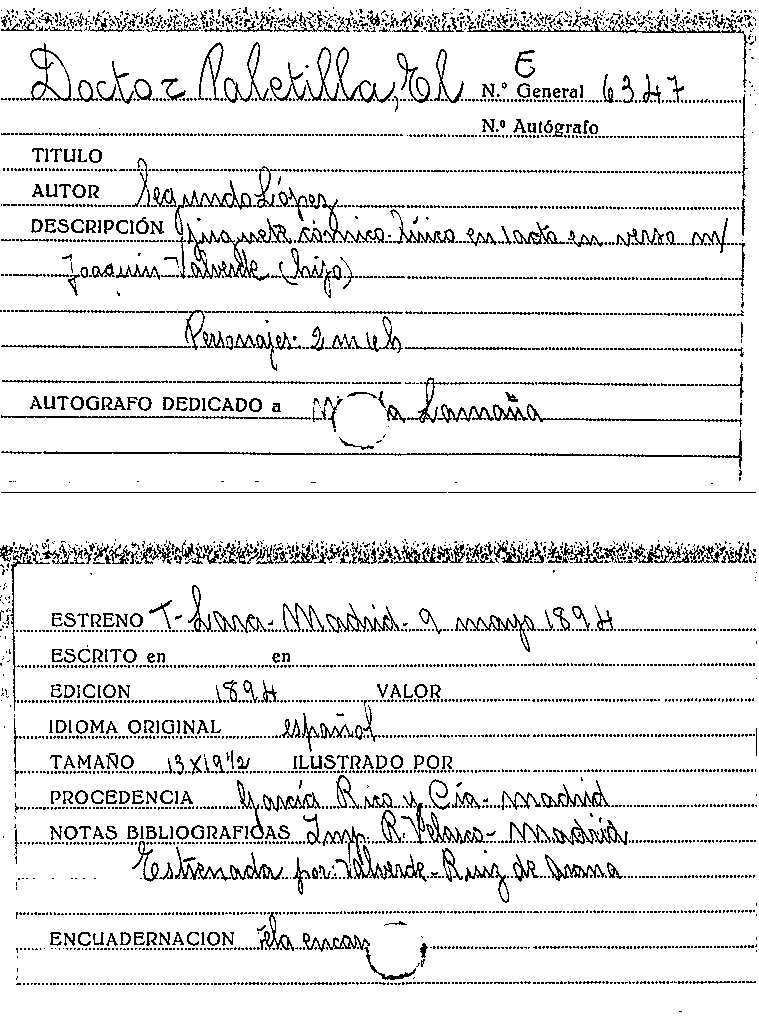 E
Doctor Paletilla, El N.º General 6347
N.º Autógrafo
TITULO
AUTOR Segundo López
DESCRIPCIÓN Juguete cómico-lírico en 1 acto en verso m/
Joaquin Valverde (hijo)
Personajes: 2 m y 6 h
AUTOGRAFO DEDICADO a Lamaña
ESTRENO T- Lara- Madrid- 9 mayo 1894
ESCRITO en en
EDICION 1894 VALOR
IDIOMA ORIGINAL español
TAMAÑO 13x19½ ILUSTRADO POR
PROCEDENCIA García Rico y Cía- Madrid
NOTAS BIBLIOGRAFICAS Imp. R. Velasco- Madrid
Estrenada por: Valverde- Ruiz de Arana
ENCUADERNACION Tela